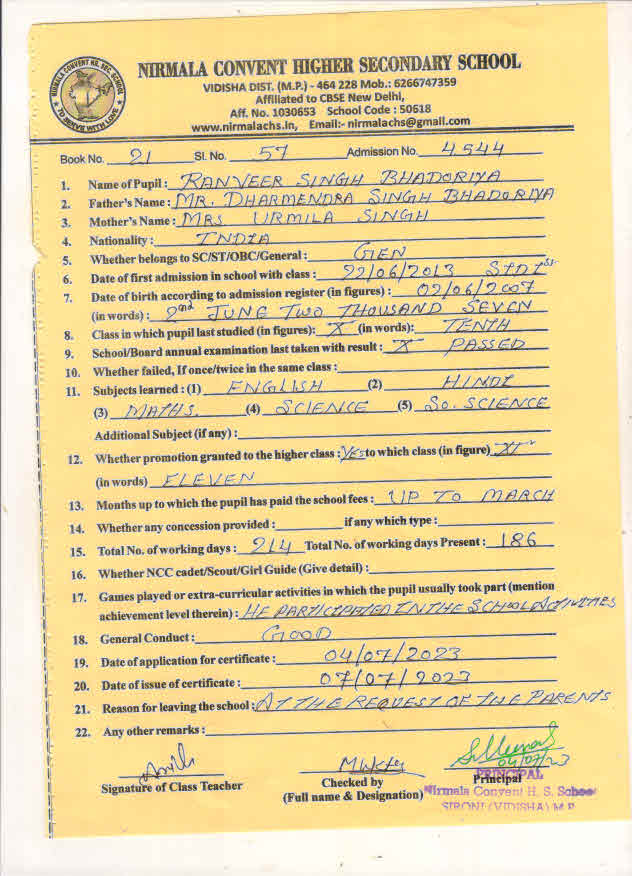 NIRMALA CONVENT HR. SEC. SCHOOL
TO SERVE WITH LOVE
NIRMALA CONVENT HIGHER SECONDARY SCHOOL
VIDISHA DIST. (M.P.) - 464 228 Mob.: 6266747359
Affiliated to CBSE New Delhi,
Aff. No. 1030653 School Code : 50618
www.nirmalachs.in, Email:- nirmalachs@gmail.com
Book No. 21 Sl. No. 57 Admission No. 4544
1. Name of Pupil : RANVEER SINGH BHADORIYA
2. Father's Name : MR. DHARMENDRA SINGH BHADORIYA
3. Mother's Name : MRS URMILA SINGH
4. Nationality : INDIA
5. Whether belongs to SC/ST/OBC/General : GEN
6. Date of first admission in school with class : 22/06/2013 STD Ist
7. Date of birth according to admission register (in figures) : 02/06/2007
(in words) : 2nd JUNE TWO THOUSAND SEVEN
8. Class in which pupil last studied (in figures): X (in words): TENTH
9. School/Board annual examination last taken with result : X PASSED
10. Whether failed, If once/twice in the same class :
11. Subjects learned : (1) ENGLISH (2) HINDI
(3) MATHS. (4) SCIENCE (5) SO. SCIENCE
Additional Subject (if any) :
12. Whether promotion granted to the higher class : YES to which class (in figure) XI
(in words) ELEVEN
13. Months up to which the pupil has paid the school fees : UP TO MARCH
14. Whether any concession provided : if any which type :
15. Total No. of working days : 214 Total No. of working days Present : 186
16. Whether NCC cadet/Scout/Girl Guide (Give detail) :
17. Games played or extra-curricular activities in which the pupil usually took part (mention
achievement level therein) : HE PARTICIPATED IN THE SCHOOL ACTIVITIES
18. General Conduct : GOOD
19. Date of application for certificate : 04/07/2023
20. Date of issue of certificate : 07/07/2023
21. Reason for leaving the school : AT THE REQUEST OF THE PARENTS
22. Any other remarks :
04/07/23
Signature of Class Teacher
Checked by
(Full name & Designation)
Principal
PRINCIPAL
Nirmala Convent H. S. School
SIRONJ (VIDISHA) M.P.